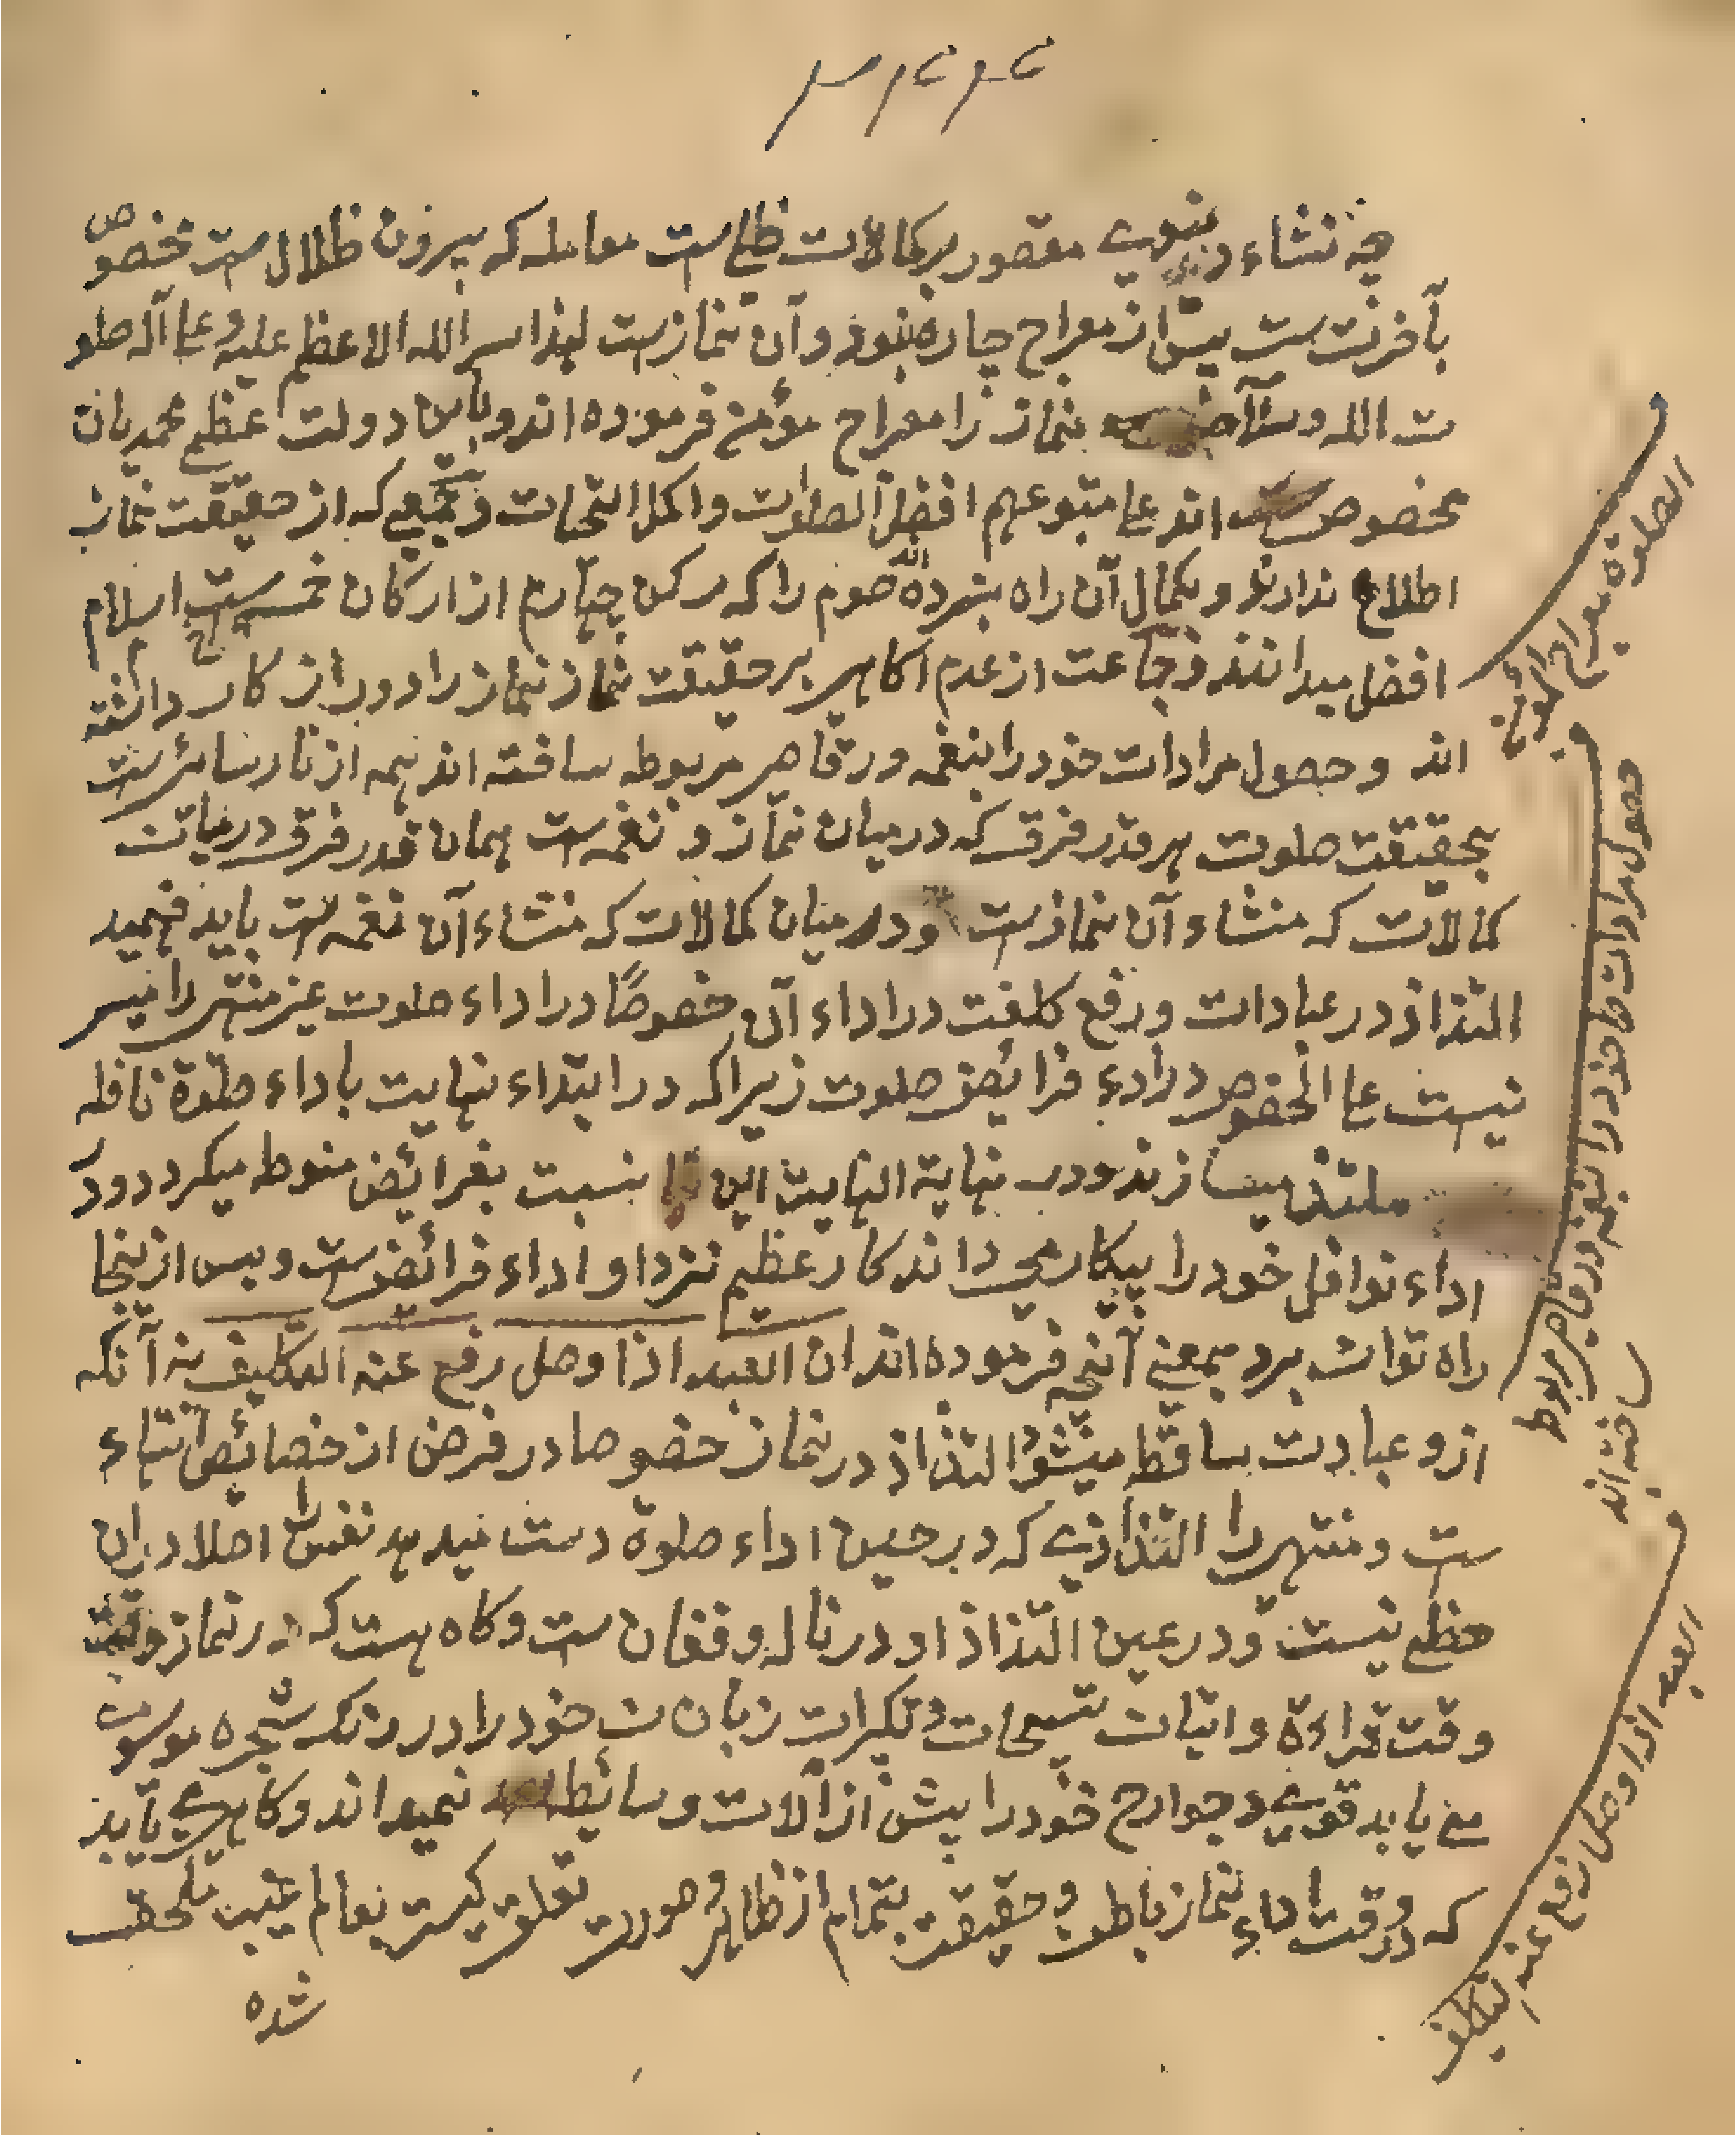 چه نشاء دنیوی مقصور بر کمالات ظلی ست معامله که بیرون ظلال ست مخصوص
بآخرت ست پس از معراج چاره نبود و آن نماز ست لهذا سر الله الاعظم علیه و علی آله صلو
ت الله و سلامه نماز را معراج مؤمن فرموده اند و باین دولت عظمی محمدیان
مخصوص اند علی متبوعهم افضل الصلوات و اکمل التحیات و جمعی که از حقیقت نماز
اطلاع ندارند و بکمال آن راه نبرده اند صوم را که رکن چهارم از ارکان خمسه اسلام ست
افضل میدانند و جماعت از عدم آکاهی بر حقیقت نماز نماز را دور از کار دانسته
اند و حصول مرادات خود را بنغمه و رقاصی مربوط ساخته اند همه از نارسائی ست
بحقیقت صلوت هر قدر فرق که درمیان نماز و نغمه ست همان قدر فرق درمیان
کمالات که منشاء آن نماز ست و درمیان کمالات که منشاء آن نغمه ست باید فهمید
التذاذ در عبادات و رفع کلفت در اداء آن خصوصًا در اداء صلوت غیر منتهی را میسر
نیست علی الخصوص در ادء فرائض صلوت زیرا که در ابتداء نهایت باداء صلوة نافله
ملتذ میسازند و در نهایة النهایت این نسبت بفرائض منوط میکردد و در
اداء نوافل خود را بیکار می داند کار عظیم نزد او اداء فرائض ست و بس از ینجا
راه توان برد بمعنی آنچه فرموده اند ان العبد اذا وصل رفع عنه التکلیف نه آنکه
ازو عبادت ساقط میشود التذاذ در نماز خصوصا در فرض از خصائص انتهاء
ست و منتهی را التذاذی که در حین اداء صلوة دست میدهد نفس را اصلا دران
حظی نیست و در عین التذاذ او در ناله و فغان ست و کاه هست که در نماز وقت
وقت قراءة و اتیان تسبیحات و تکبیرات زبان خود را در رنک شجره موسوی
می یابد قوی و جوارح خود را بیش از آلات و سائط نمیداند و کاهی می یابد
که در وقت اداء نماز باطن و حقیقت بتمام از ظاهر و صورت تعلق کیسته بعالم غیب ملحق
شده
الصلوة معراج المؤمن
حصول مرادات خود را بنغمه و رقاصی مربوط
ساخته اند
العبد اذا وصل رفع عنه التکلیف